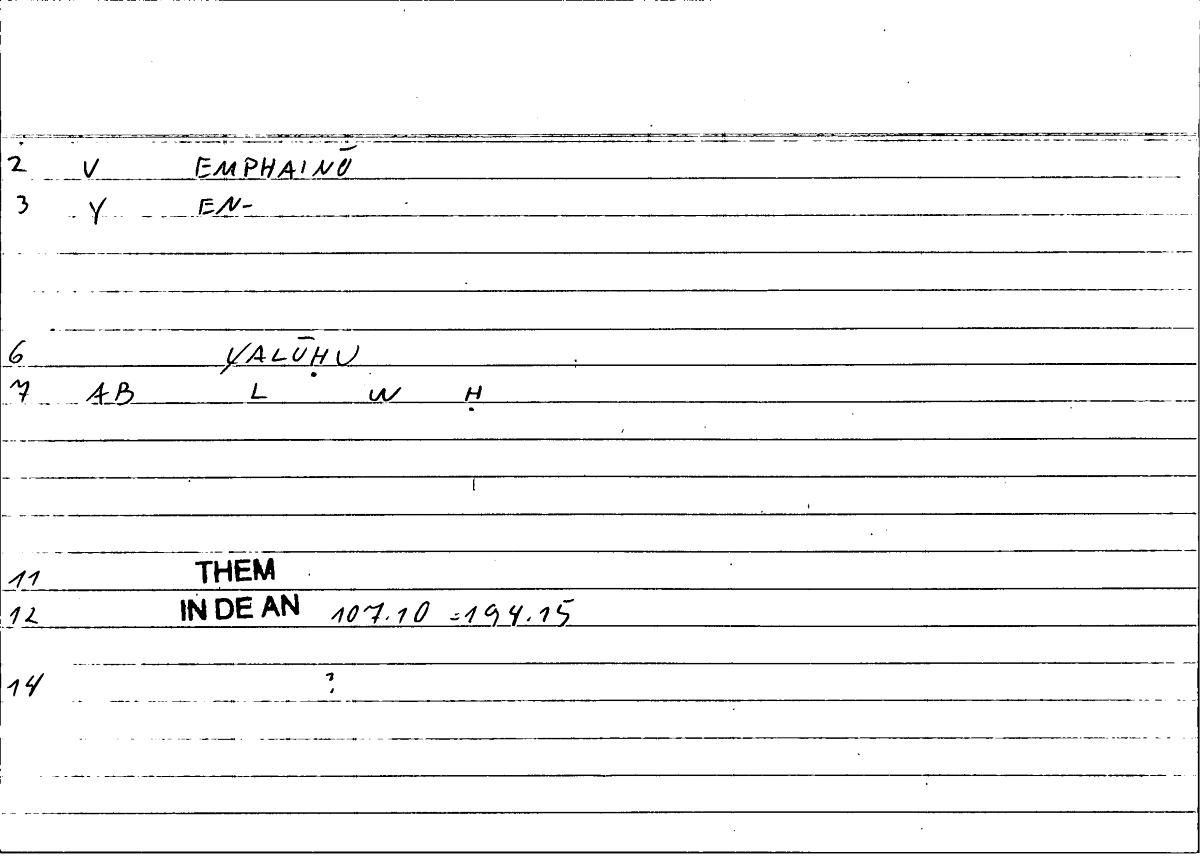 2 V EMPHAINŌ
3 Y EN-
6 YALŪḤU
7 AB L W Ḥ
11 THEM
12 IN DE AN 107.10 =194.15
14 ?